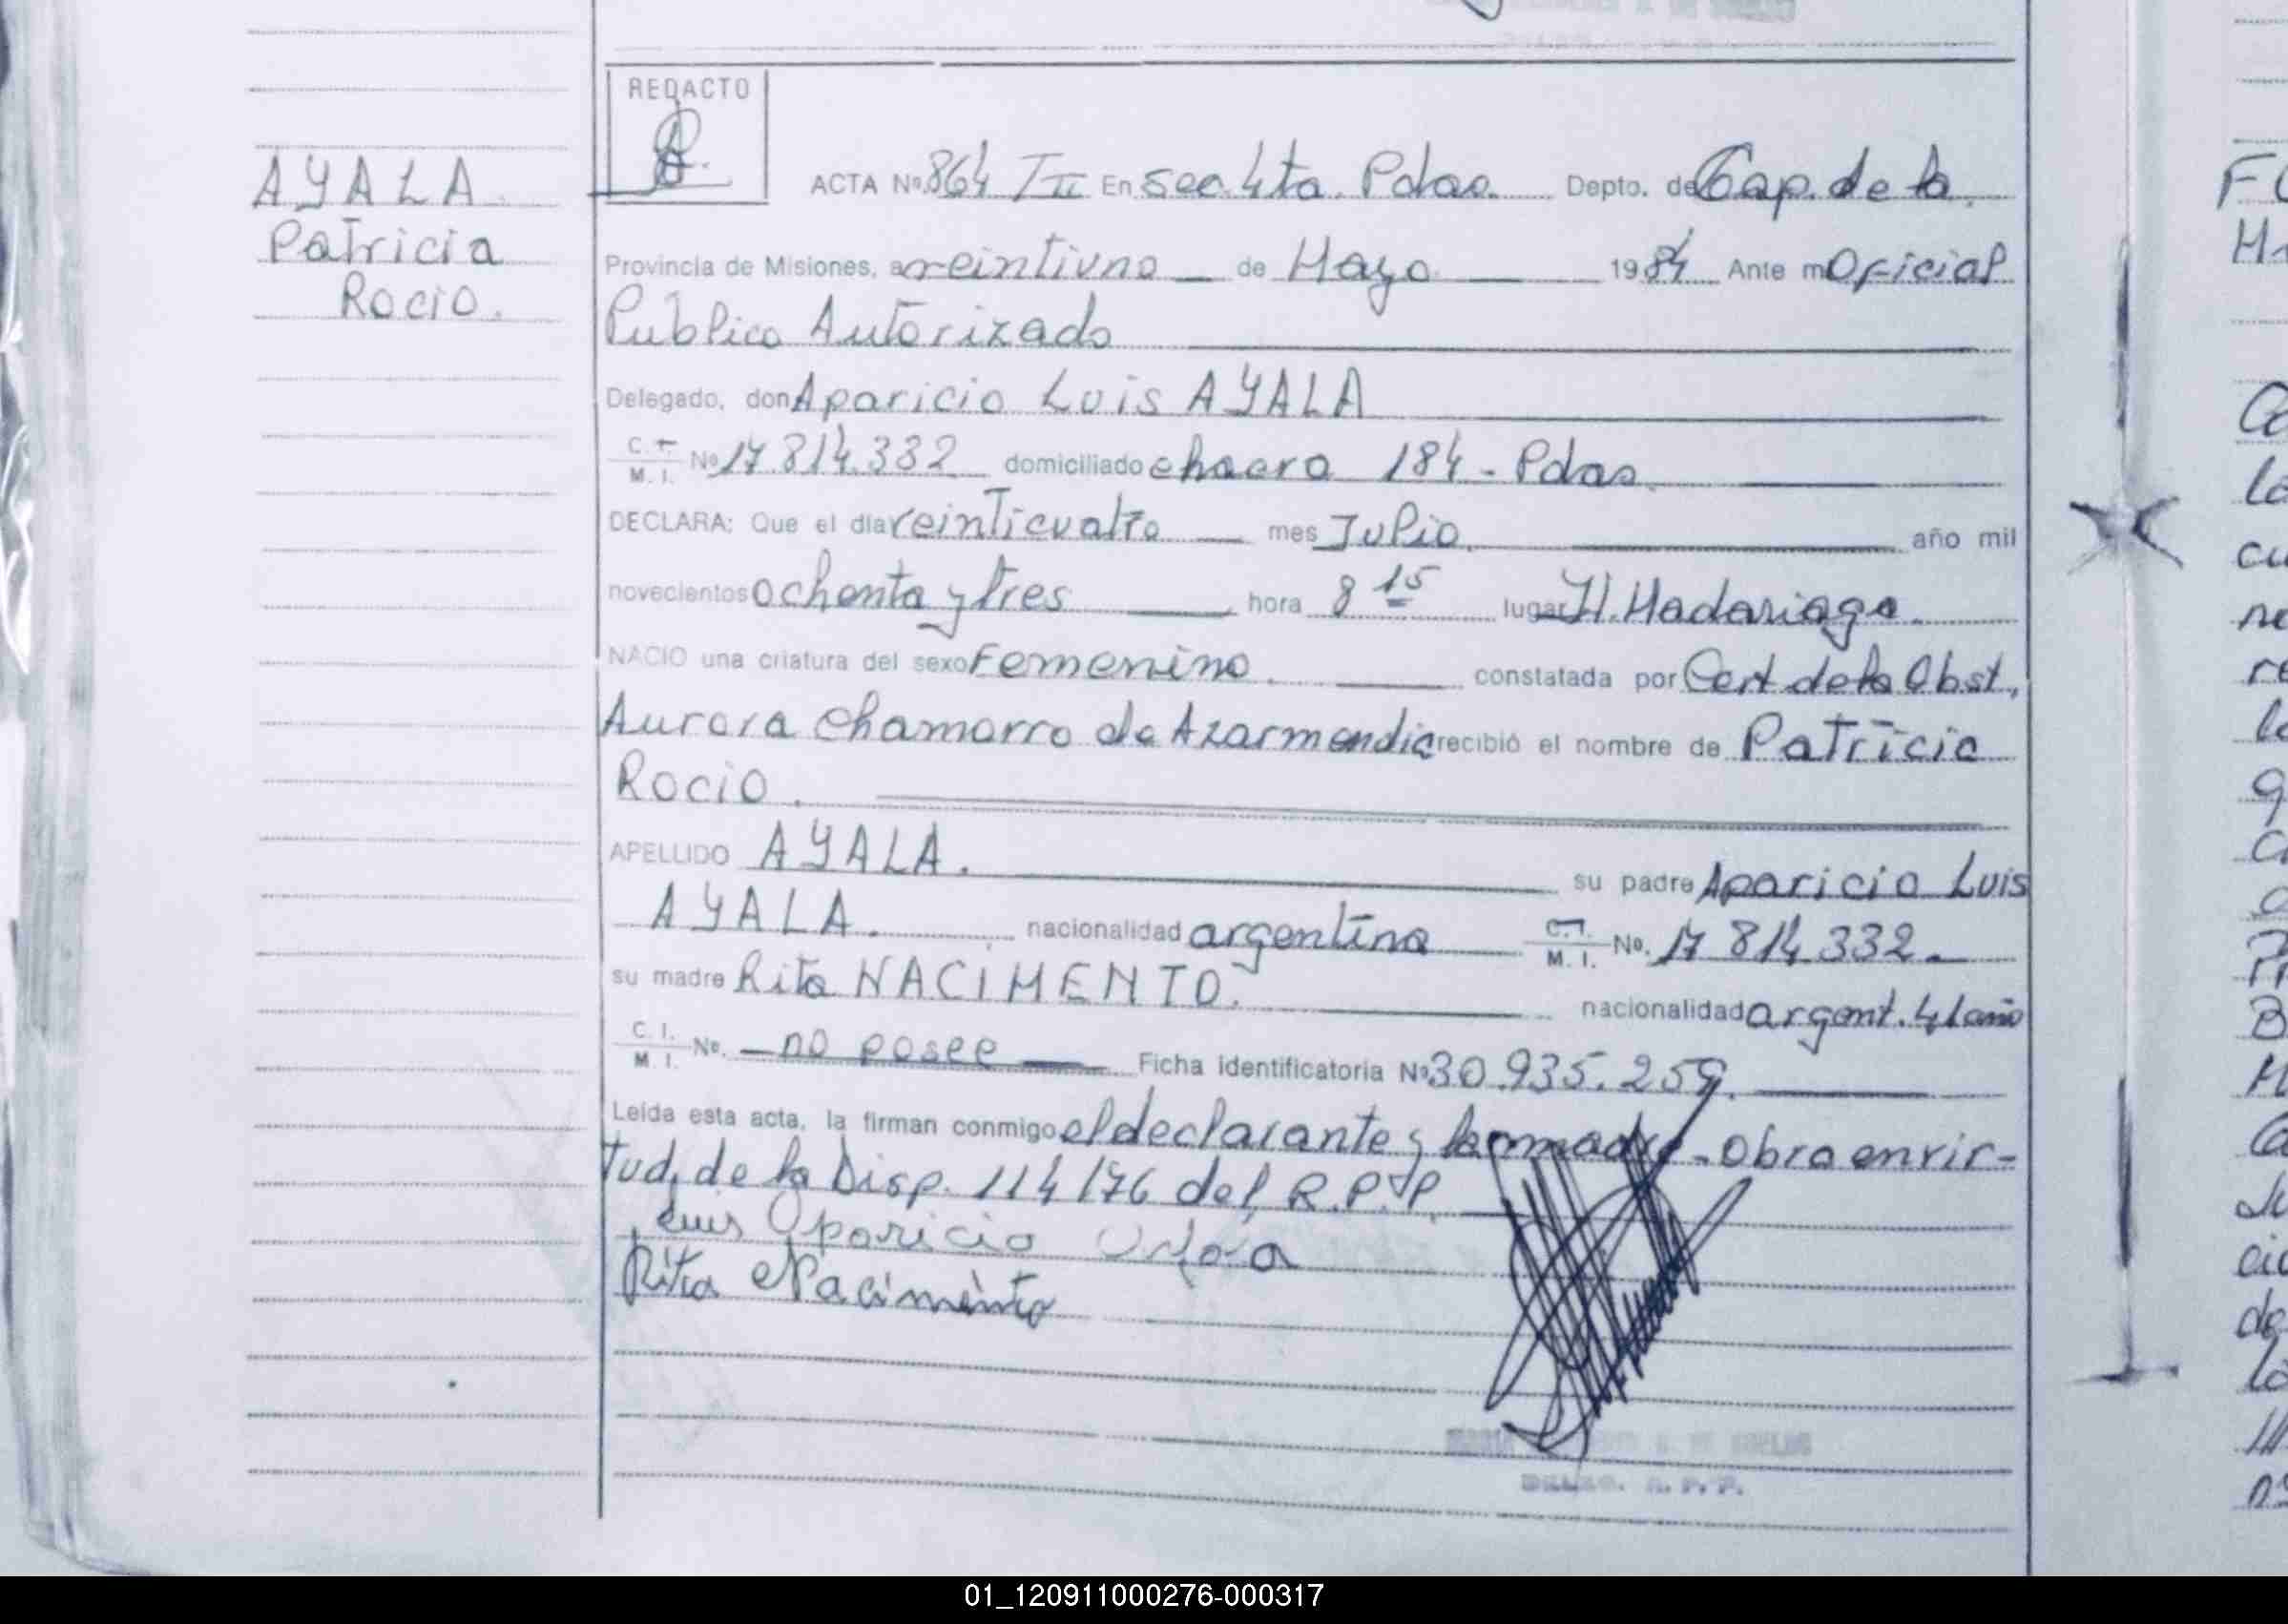 REDACTO
AYALA
Patricia
Rocio.
ACTA Nº 864 TII En sec. 4ta. Pdas. Depto. de Cap. de la
Provincia de Misiones, a veintiuno de Mayo 1984 Ante mi Oficial
Publico Autorizado
Delegado, don Aparicio Luis AYALA
C. I. M. I. Nº 17.814.332 domiciliado chacra 184 - Pdas.
DECLARA: Que el día veinticuatro mes Julio. año mil
novecientos ochenta y tres hora 8 15 lugar H. Madariaga.
NACIO una criatura del sexo Femenino. constatada por Cert. de la Obst,
Aurora Chamorro de Azarmendia recibió el nombre de Patricia
Rocio.
APELLIDO AYALA. su padre Aparicio Luis
AYALA. nacionalidad argentina C. I. M. I. No. 17.814.332
su madre Rita NACIMENTO. nacionalidad argent. 41 año
C. I. M. I. No. - no posee - Ficha identificatoria Nº 30.935.259.
Leída esta acta, la firman conmigo el declarante y la madre - Obra en vir-
tud, de la Disp. 114/76 del R.P.P.
Luis Aparicio
Rita Nacimento
01_120911000276-000317